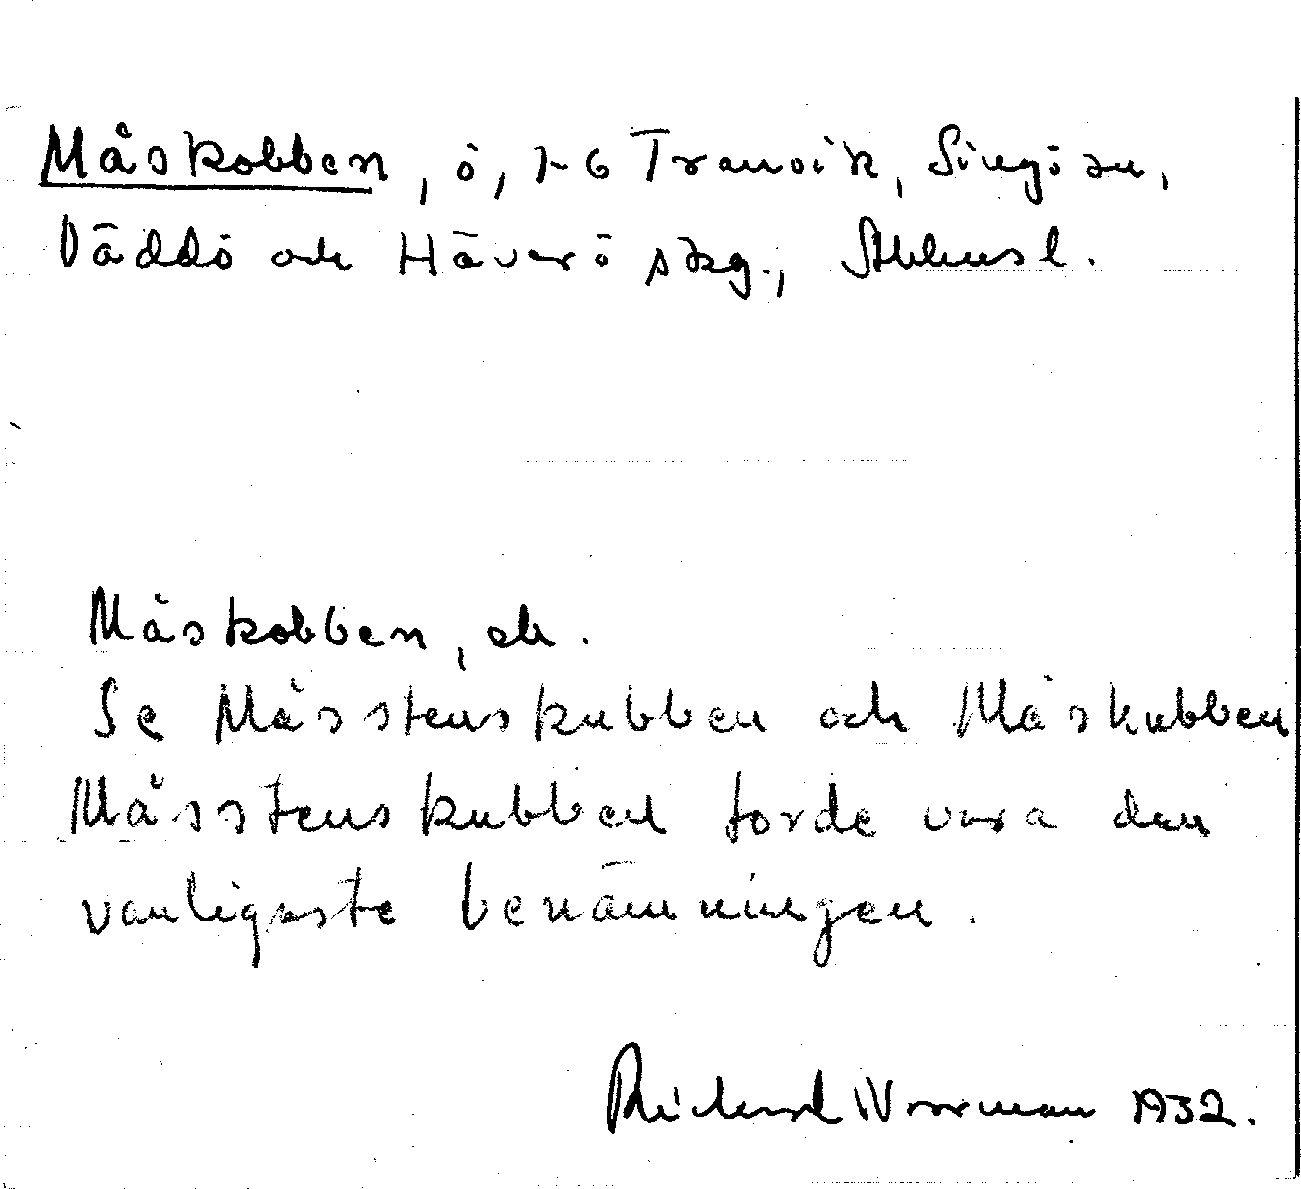 Måskobben, ö, 1-6 Tranvik, Singö sn,
Väddö och Häverö skg., Sthlms l.
Måskobben, ek.
Se Måsstenskubben och Måskubben
Måsstenskubben torde vara den
vanligaste benämningen.
Rickard Norrman 1932.